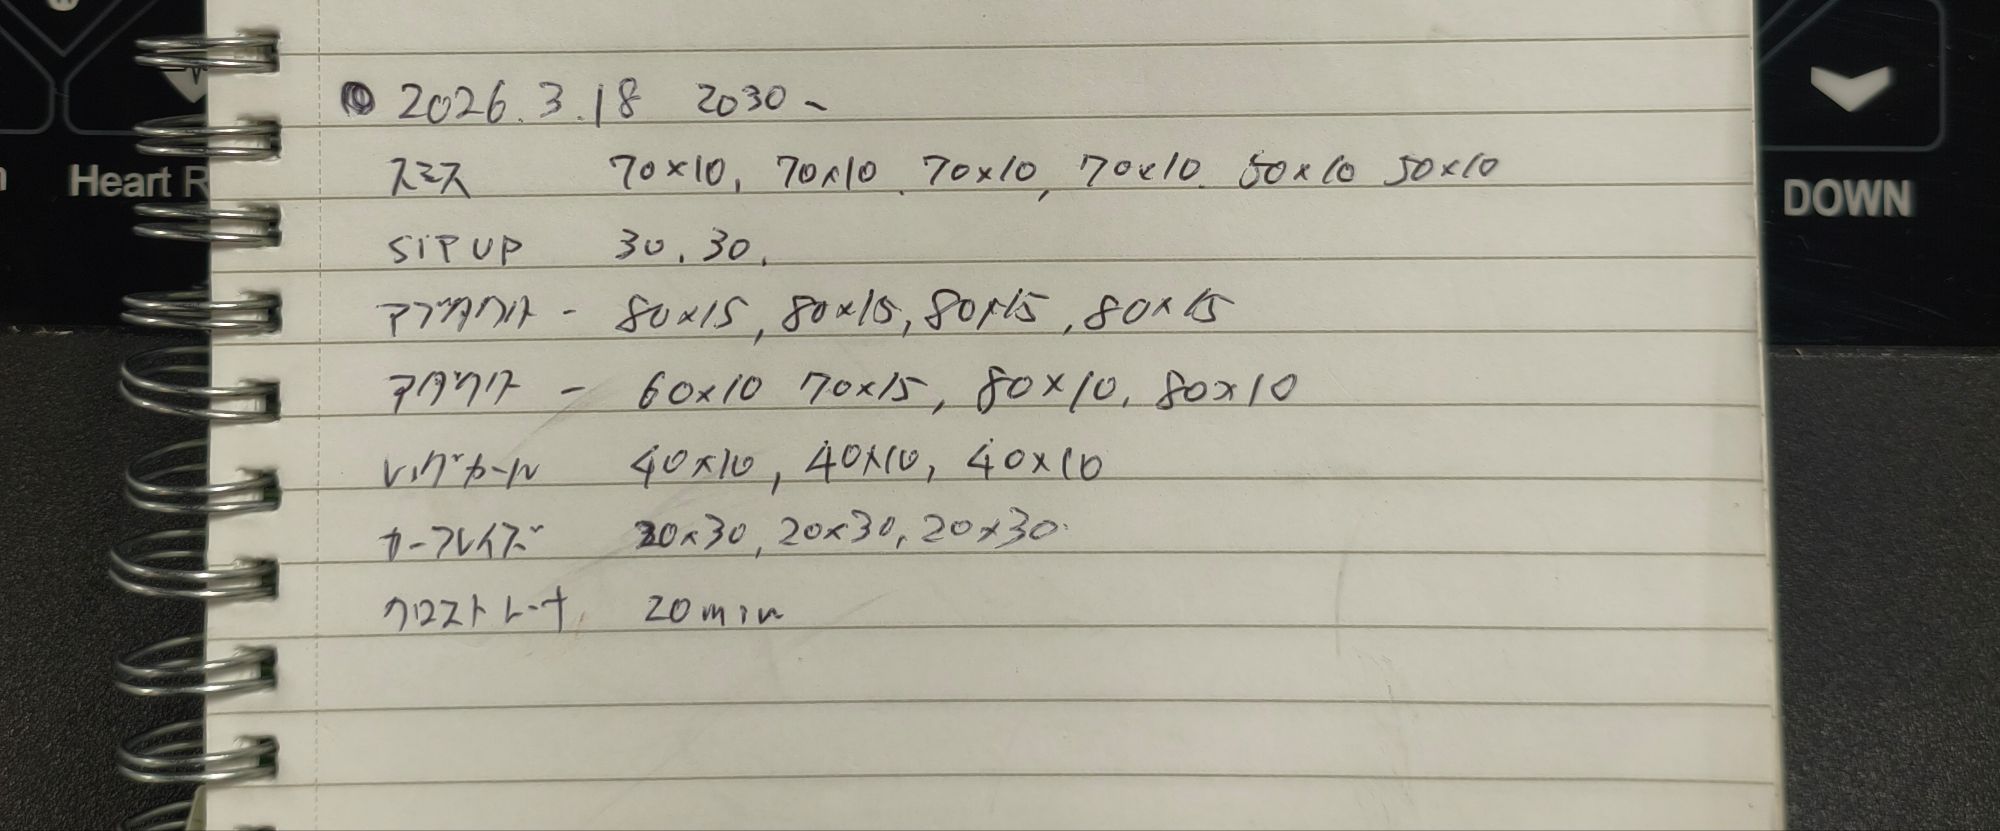 2026.3.18 2030~
スミス 70×10, 70×10. 70×10, 70×10. 50×10 50×10
SIT UP 30. 30.
アブダクター - 80×15, 80×15, 80×15, 80×15
アダクター - 60×10 70×15, 80×10, 80×10
レッグカール 40×10, 40×10, 40×10
カーフレイズ 20×30, 20×30, 20×30.
クロストレーナ 20min
Heart R
DOWN